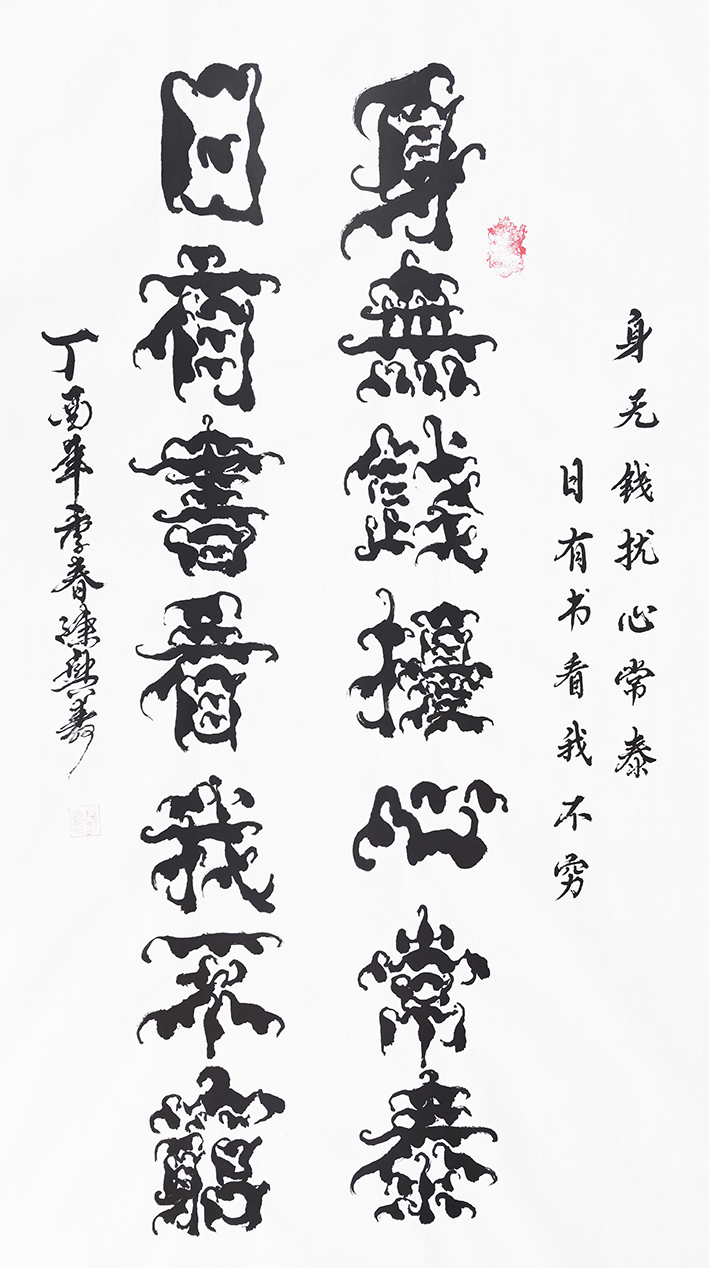 身无钱扰心常泰
目有书看我不穷
身無錢擾心常泰
目有書看我不窮
丁酉年季春梁興壽